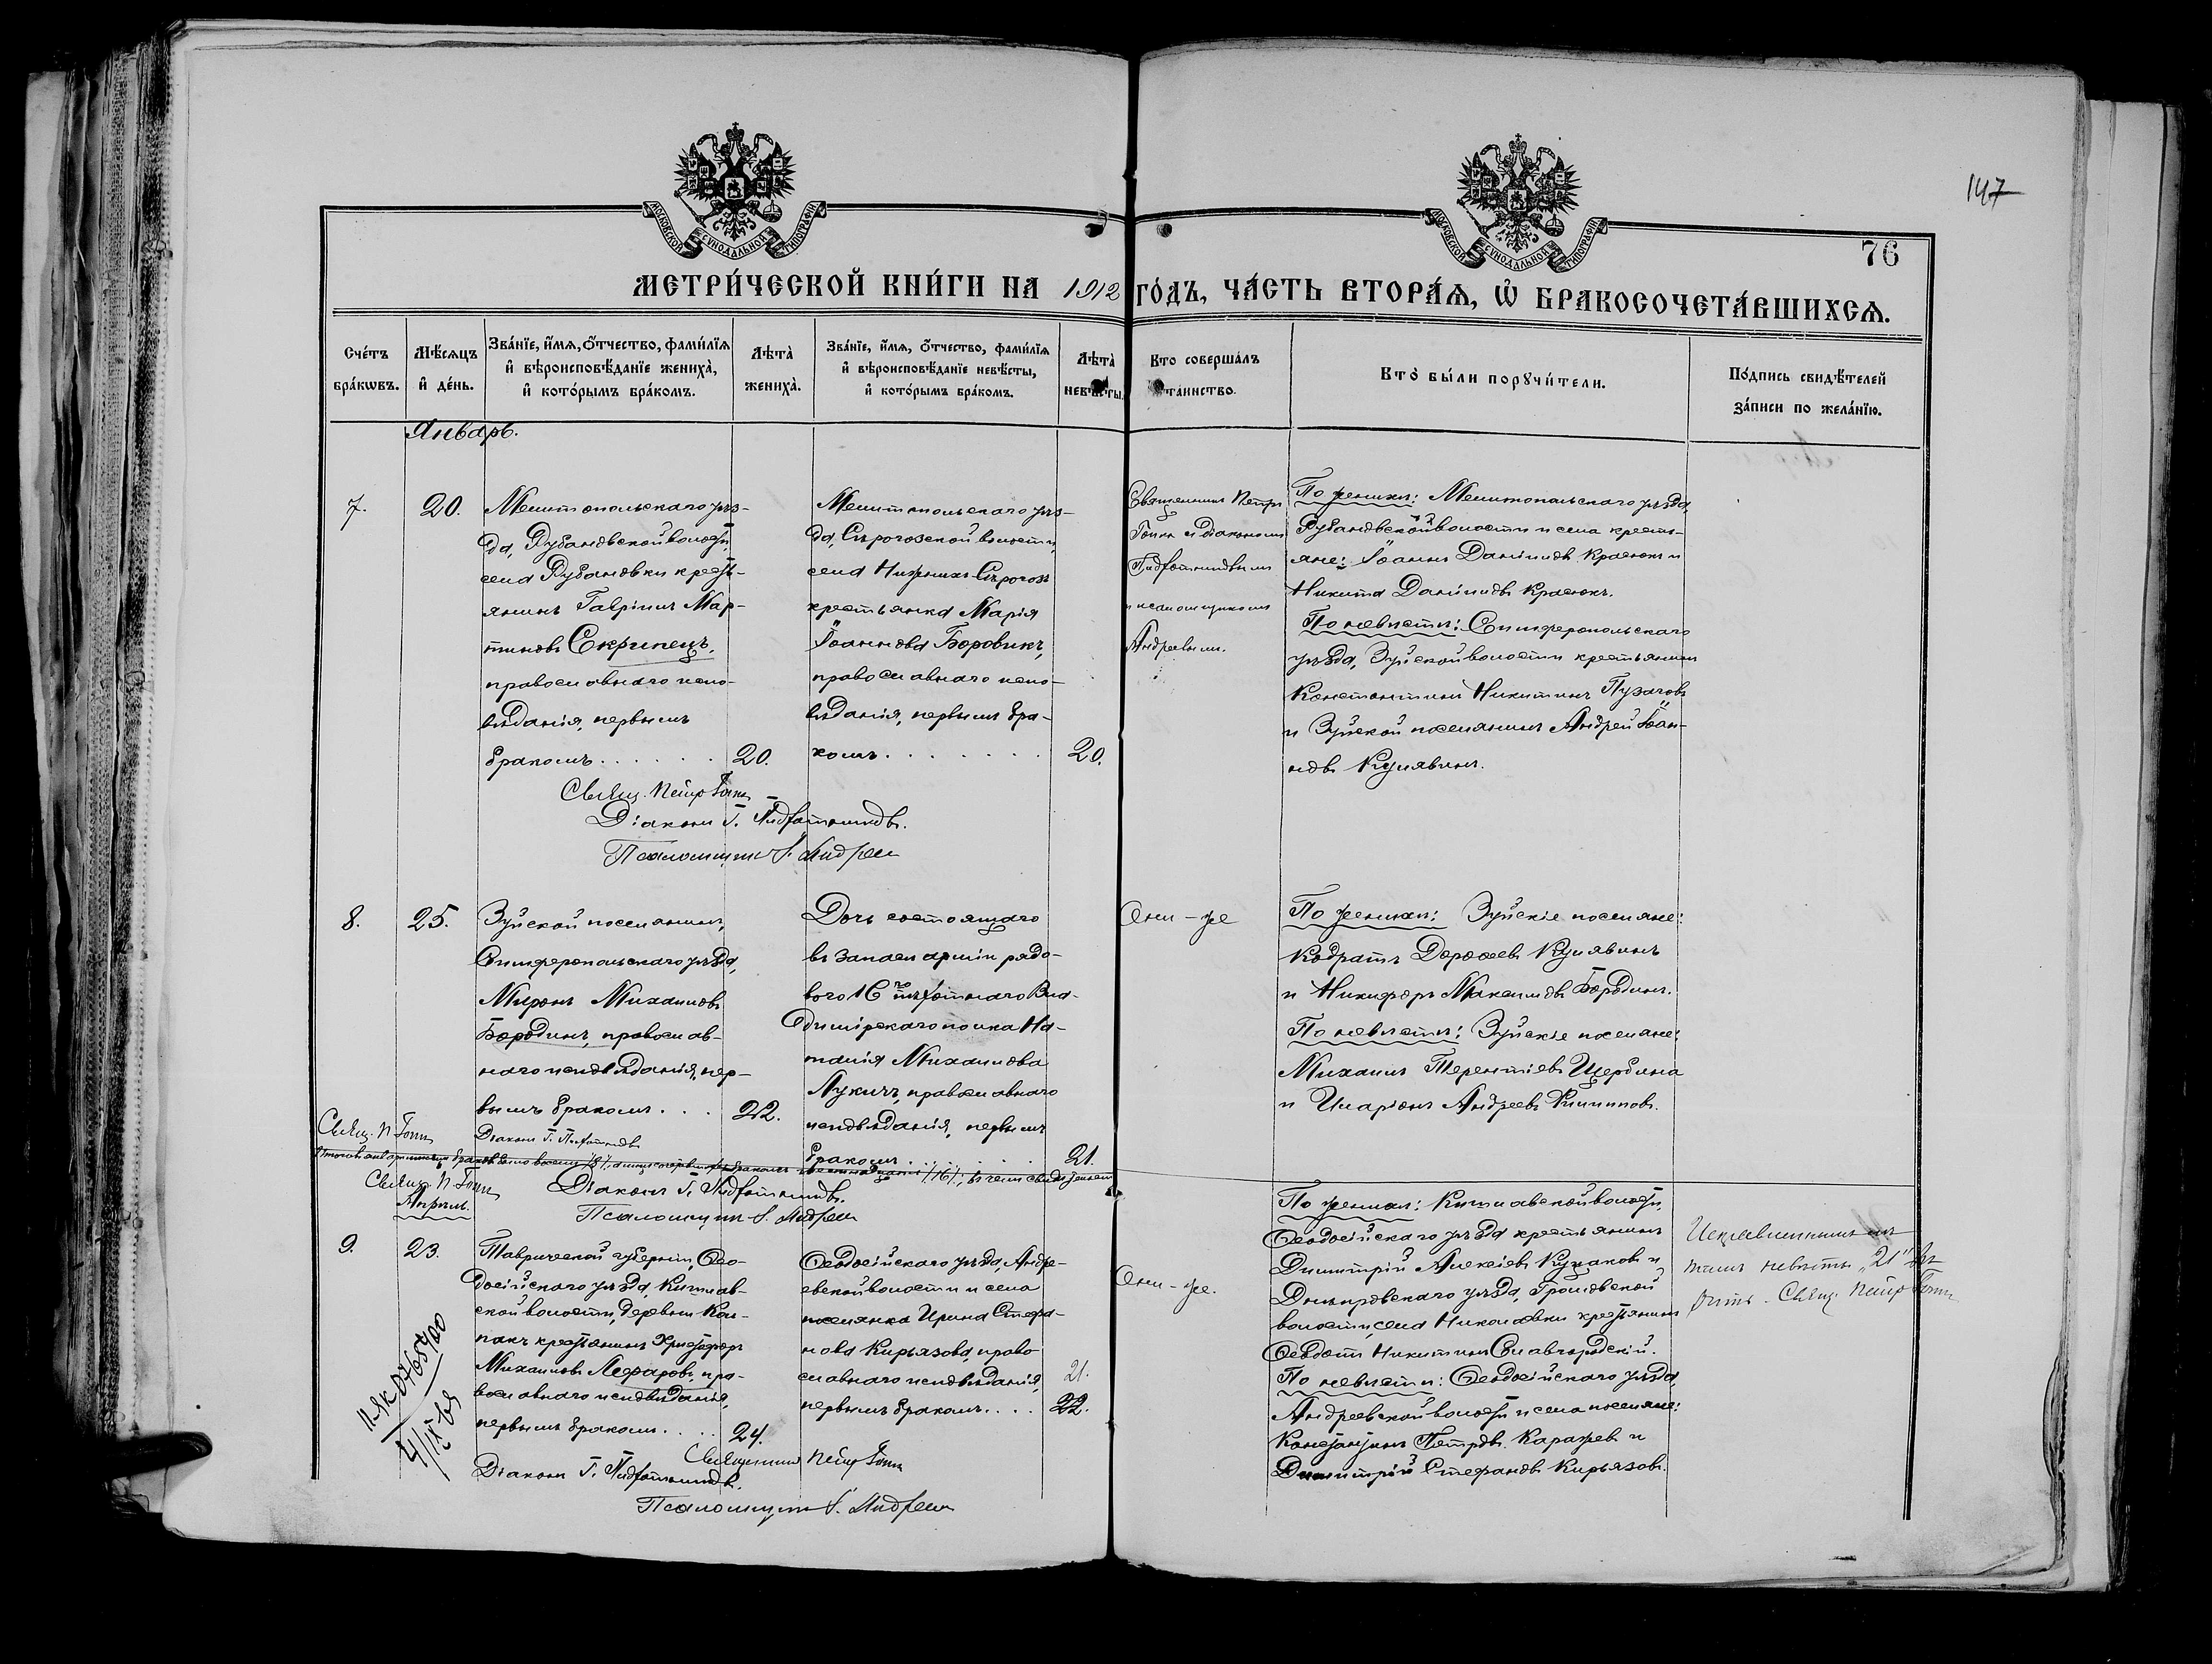 147
76
МОСКОВСКОЙ СѴНОДАЛЬНОЙ ТИПОГРАФІИ
МОСКОВСКОЙ СѴНОДАЛЬНОЙ ТИПОГРАФІИ
МЕТРИ́ЧЕСКОЙ КНИ́ГИ НА 1912 ГО́ДЪ, ЧА́СТЬ ВТОРА́Ѧ, Ѡ҆ БРАКОСОЧЕТА́ВШИХСѦ.
Сче́тъ бра́кѡвъ.
Мѣ́сяцъ и҆ де́нь.
Зва́нїе, и҆́мѧ, ѻ҆́тчество, фами́лїѧ и҆ вѣроисповѣ́данїе жениха̀, и҆ кото́рымъ бра́комъ.
Лѣ́та̀ жениха̀.
Зва́нїе, и҆́мѧ, ѻ҆́тчество, фами́лїѧ и҆ вѣроисповѣ́данїе невѣ́сты, и҆ кото́рымъ бра́комъ.
Лѣ́та̀ невѣ́сты.
Кто соверша́лъ та́инство.
Кто̀ бы́ли порꙋчи́тели.
По́дпись свидѣ́телей за́писи по жела́нїю.
Январь.
7.
20.
Мелитопольскаго уѣз-
да, Рубановской волости,
села Рубановки кресть-
янинъ Гавріилъ Мар-
тиновъ Скрипецъ,
православнаго испо-
вѣданія, первымъ
бракомъ . . . . . .
20.
Мелитопольскаго уѣз-
да, Сѣрогозской волости,
села Нижнихъ Сѣрогозъ
крестьянка Марія
Іоаннова Боровикъ,
православнаго испо-
вѣданія, первымъ бра-
комъ . . . . . . .
20.
Священникъ Петръ
и діакономъ
и псаломщикомъ
Андреевымъ.
По женихѣ: Мелитопольскаго уѣзда,
Рубановской волости и села кресть-
яне: Іоаннъ Даніиловъ Краснокъ и
Никита Даніиловъ Краснокъ.
По невѣстѣ: Симферопольскаго
уѣзда, Зуйской волости крестьянинъ
Константинъ Никитинъ Пузачовъ
и Зуйской поселянинъ Андрей Іоан-
новъ Кулявинъ.
Свящ. Петръ
Діаконъ Г.
Псаломщикъ Андреев
8.
25.
Зуйской поселянинъ,
Симферопольскаго уѣзда,
Миронъ Михаиловъ
Бородинъ, православ-
наго исповѣданія, пер-
вымъ бракомъ . . .
22.
Дочь состоящаго
въ запасѣ арміи рядо-
вого 16го пѣхотнаго Вла-
димірскаго полка На-
талія Михаилова
Лукичъ, православнаго
исповѣданія, первымъ
бракомъ . . . . . . .
21.
Они-же
По женихѣ: Зуйскіе поселяне:
Кодратъ Дороѳеевъ Кулявинъ
и Никифоръ Максимовъ Бородинъ.
По невѣстѣ: Зуйскіе поселяне:
Михаилъ Терентіевъ Щербина
и Иларіонъ Андреевъ Филиповъ.
Свящ. П.
Діаконъ Г.
Свящ. П.
Діаконъ Г.
Псаломщикъ Андреев
Апрѣль.
9.
23.
Таврической губерніи, Ѳео-
досійскаго уѣзда, Китлав-
ской волости, деревни Кол-
пакъ крестьянинъ Христофоръ
Михаиловъ Лефаровъ, пра-
вославнаго исповѣданія,
первымъ бракомъ . . . .
24.
Ѳеодосійскаго уѣзда, Андре-
евской волости и села
поселянка Ирина Стефа-
нова Кирьязова, право
славнаго исповѣданія,
первымъ бракомъ . . . .
21.
22.
Они-же.
По женихѣ: Китлавской волости,
Ѳеодосійскаго уѣзда крестьянинъ
Димитрій Алексіевъ Кузаковъ и
Днѣпровскаго уѣзда, Громовской
волости, села Николаевки крестьянинъ
Ѳеодотъ Никитинъ Славгородскій.
По невѣстѣ: Ѳеодосійскаго уѣзда,
Андреевской волости и села поселяне:
Константинъ Петровъ Каражевъ и
Димитрій Стефановъ Кирьязовъ.
невѣсты „21"
Свящ. Петръ
Священникъ Петръ
Діаконъ Г.
Псаломщикъ Андреев